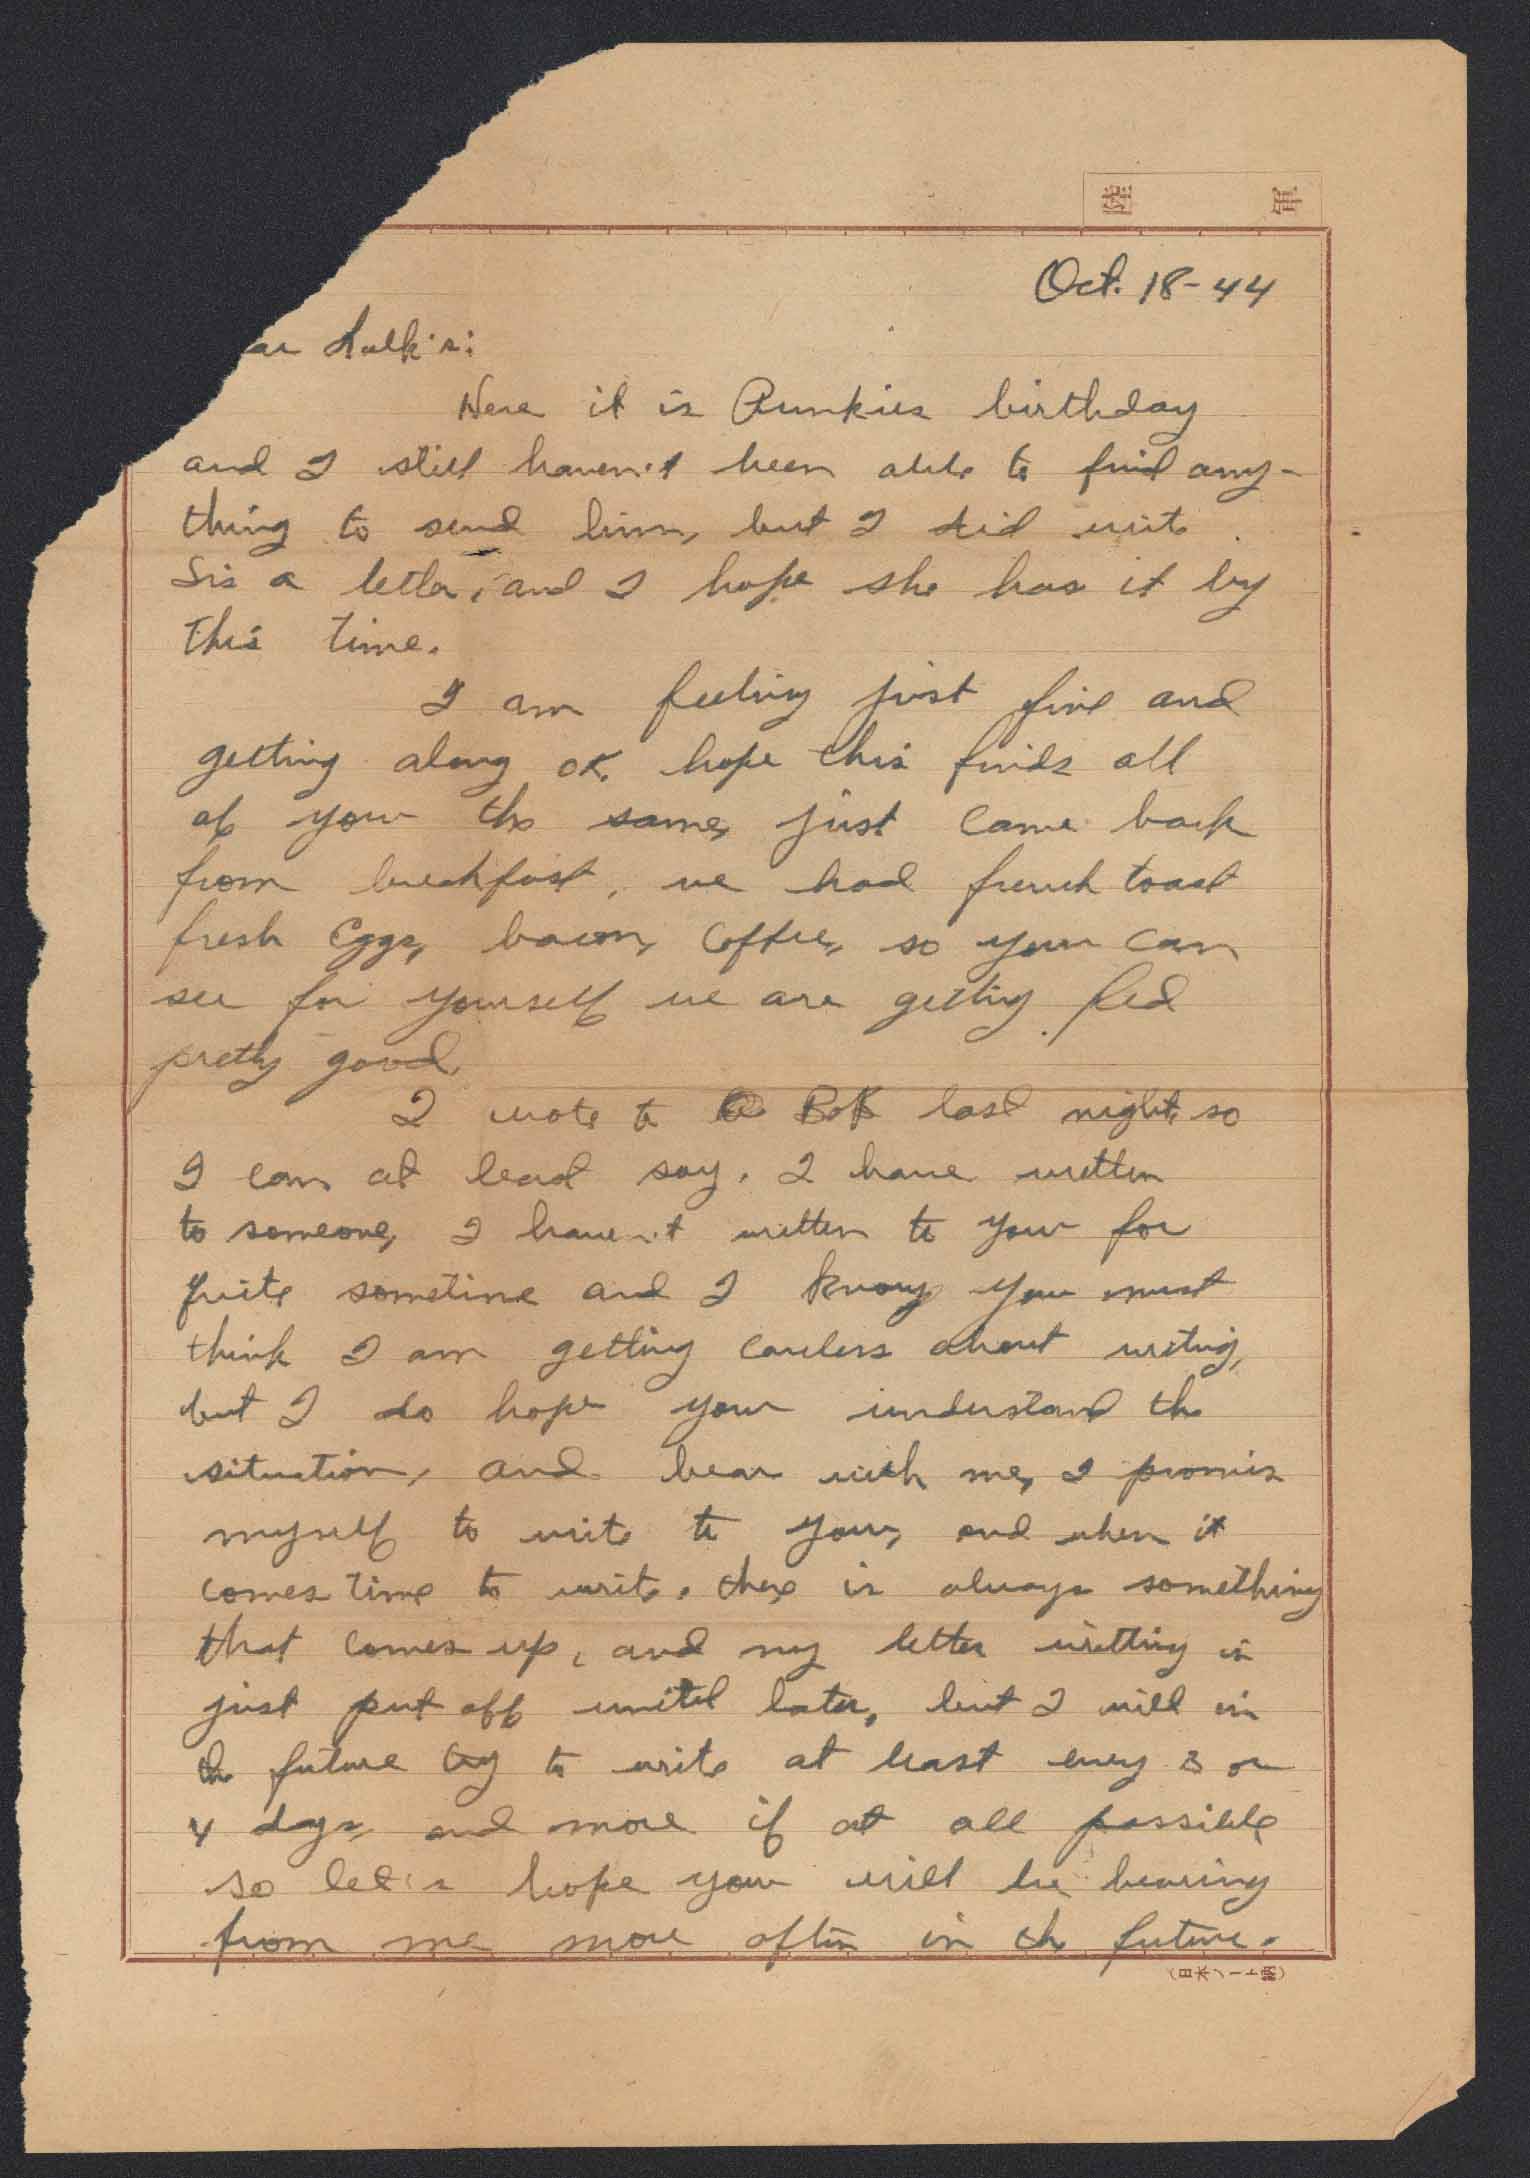 Oct. 18-44
ar Folk's:
Here it is Punkies birthday
and I still haven't been able to find any-
thing to send him, but I did write
Sis a letter, and I hope she has it by
this time.
I am feeling just fine and
getting along OK. hope this finds all
of you the same, just came back
from breakfast, we had french toast
fresh Eggs, bacon, Coffee, so you can
see for yourself we are getting fed
pretty good
I wrote to Bob last night, so
I can at least say. I have written
to someone, I haven't written to you for
quite sometime and I know you must
think I am getting careless about writing,
but I do hope you understand the
situation, and bear with me, I promis
myself to write to you, and when it
comes time to write. there is always something
that comes up, and my letter writting is
just put off until later, but I will in
the future try to write at least every 3 or
4 days, and more if at all possible
so let's hope you will be hearing
from me more often in the future.
(日本ノート納)